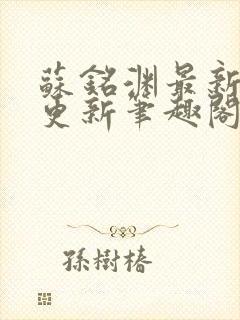 蘇銘淵最新
更新筆趣閣
孫樹椿